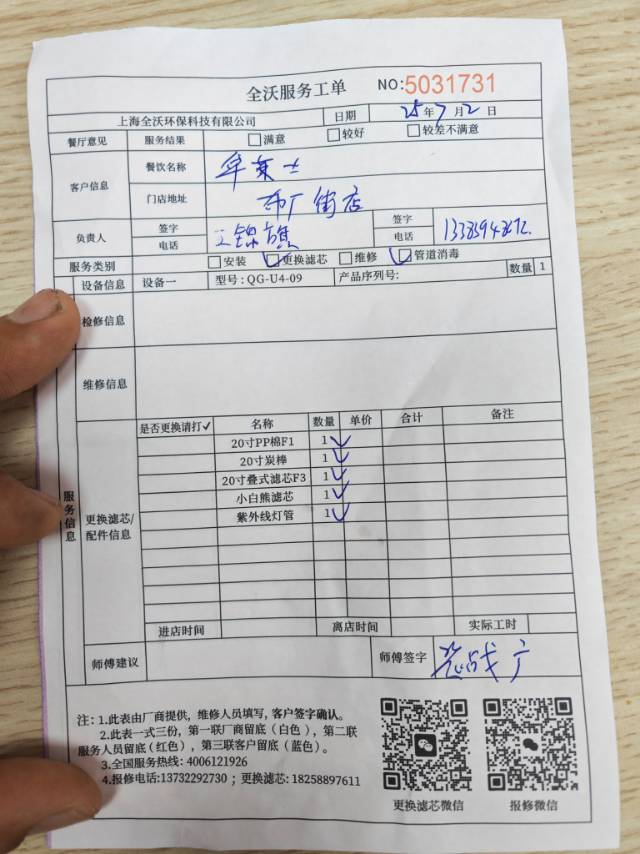 全沃服务工单 NO:5031731
上海全沃环保科技有限公司 日期 25年7月2日
餐厅意见 服务结果 满意 较好 较差不满意
客户信息 餐饮名称 华莱士
门店地址 布厂街店
负责人 签字 王锦旗 签字
电话 电话
服务类别 安装 更换滤芯 维修 管道消毒
设备信息 设备一 型号:QG-U4-09 产品序列号: 数量 1
检修信息
维修信息
服务信息
更换滤芯/配件信息
是否更换请打✓ 名称 数量 单价 合计 备注
20寸PP棉F1 1
20寸炭棒 1
20寸叠式滤芯F3 1
小白熊滤芯 1
紫外线灯管 1
进店时间 离店时间 实际工时
师傅建议 师傅签字
注:1.此表由厂商提供,维修人员填写,客户签字确认。
2.此表一式三份,第一联厂商留底(白色),第二联
服务人员留底(红色),第三联客户留底(蓝色)。
3.全国服务热线:4006121926
4.报修电话:13732292730;更换滤芯:18258897611
更换滤芯微信 报修微信